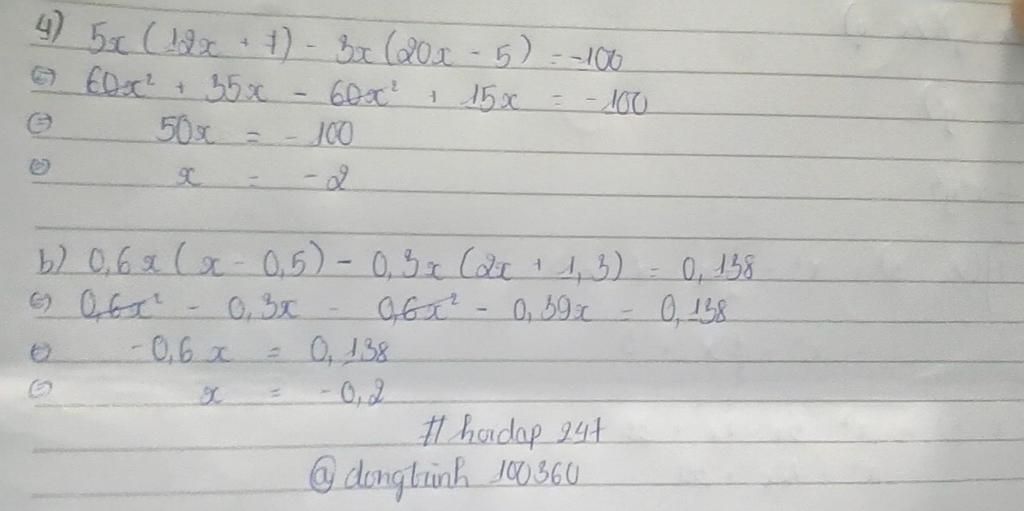 4) 5x (12x + 7) - 3x (20x - 5) = -100
⇔ 60x² + 35x - 60x² + 15x = -100
⇔ 50x = -100
⇔ x = -2
b) 0,6x (x - 0,5) - 0,3x (2x + 1,3) = 0,138
⇔ 0,6x² - 0,3x - 0,6x² - 0,39x = 0,138
⇔ -0,6x = 0,138
⇔ x = -0,2
# hoidap 247
@dongtrinh 100360